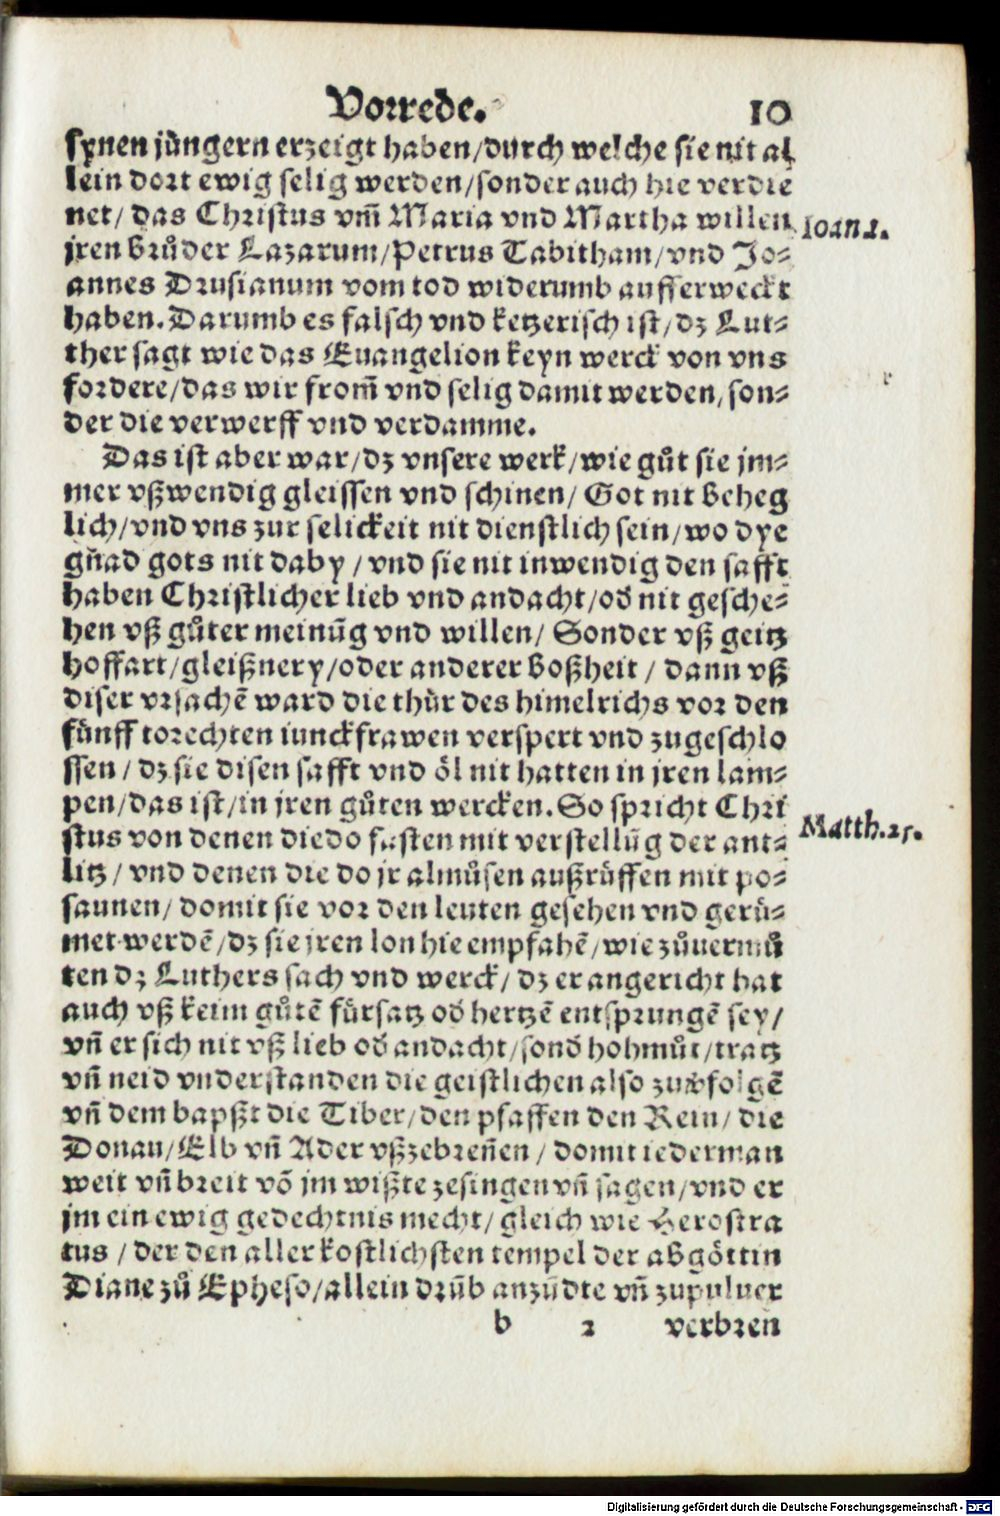 Vorrede. 10
synen jüngern erzeigt haben/durch welche sie nit al
lein dort ewig selig werden/sonder auch hie verdie
net/ das Christus vm̃ Maria vnd Martha willen
Ioan 1.
jren brůder Lazarum/Petrus Tabitham/vnd Jo⸗
annes Drusianum vom tod widerumb aufferweckt
haben. Darumb es falsch vnd ketzerisch ist/dz Lut⸗
ther sagt wie das Euangelion keyn werck von vns
fordere/das wir from̃ vnd selig damit werden, son⸗
der die verwerff vnd verdamme.
Das ist aber war/dz vnsere werk/wie gůt sie jm⸗
mer vßwendig gleissen vnd schinen/ Got nit beheg
lich/vnd vns zur selickeit nit dienstlich sein/wo dye
gñad gots nit daby/vnd sie nit inwendig den safft
haben Christlicher lieb vnd andacht/od̕ nit gesche⸗
hen vß gůter meinũg vnd willen/ Sonder vß geitz
hoffart/gleißnery/oder anderer boßheit/ dann vß
diser vrsachẽ ward die thür des himelrichs vor den
fünff torechten iunckfrawen verspert vnd zugeschlo
ssen/ dz sie disen safft vnd öl nit hatten in jren lam⸗
pen/das ist/in jren gůten wercken. So spricht Chri
Matth.25.
stus von denen die do fasten mit verstellũg der ant⸗
litz/ vnd denen die do jr almůsen außrüffen mit po⸗
saunen/ domit sie vor den leuten gesehen vnd gerü⸗
met werdẽ/dz sie jren lon hie empfahẽ/wie zůuermů
ten dz Luthers sach vnd werck/ dz er angericht hat
auch vß keim gůtẽ fürsatz od̕ hertzẽ entsprungẽ sey/
vñ er sich nit vß lieb od̕ andacht/sond̕ hohmůt/tratz
vñ neid vnderstanden die geistlichen also zuu̕folgẽ
vñ dem bapßt die Tiber/den pfaffen den Rein/ die
Donau/Elb vñ Ader vßzebreñen/ domit iederman
weit vñ breit võ jm wißte zesingen vñ sagen/vnd er
jm ein ewig gedechtnis mecht/ gleich wie Herostra
tus/ der den aller kostlichsten tempel der abgöttin
Diane zů Epheso/allein drũb anzũdte vñ zupuluer
b 2 verbren
Digitalisierung gefördert durch die Deutsche Forschungsgemeinschaft - DFG